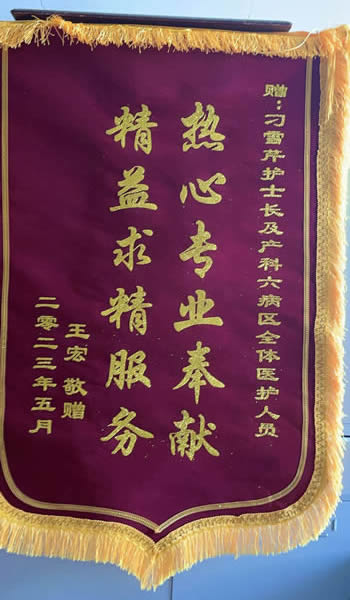 赠:刁雪芹护士长及产科六病区全体医护人员
热心专业奉献
精益求精服务
王宏 敬赠
二零二三年五月